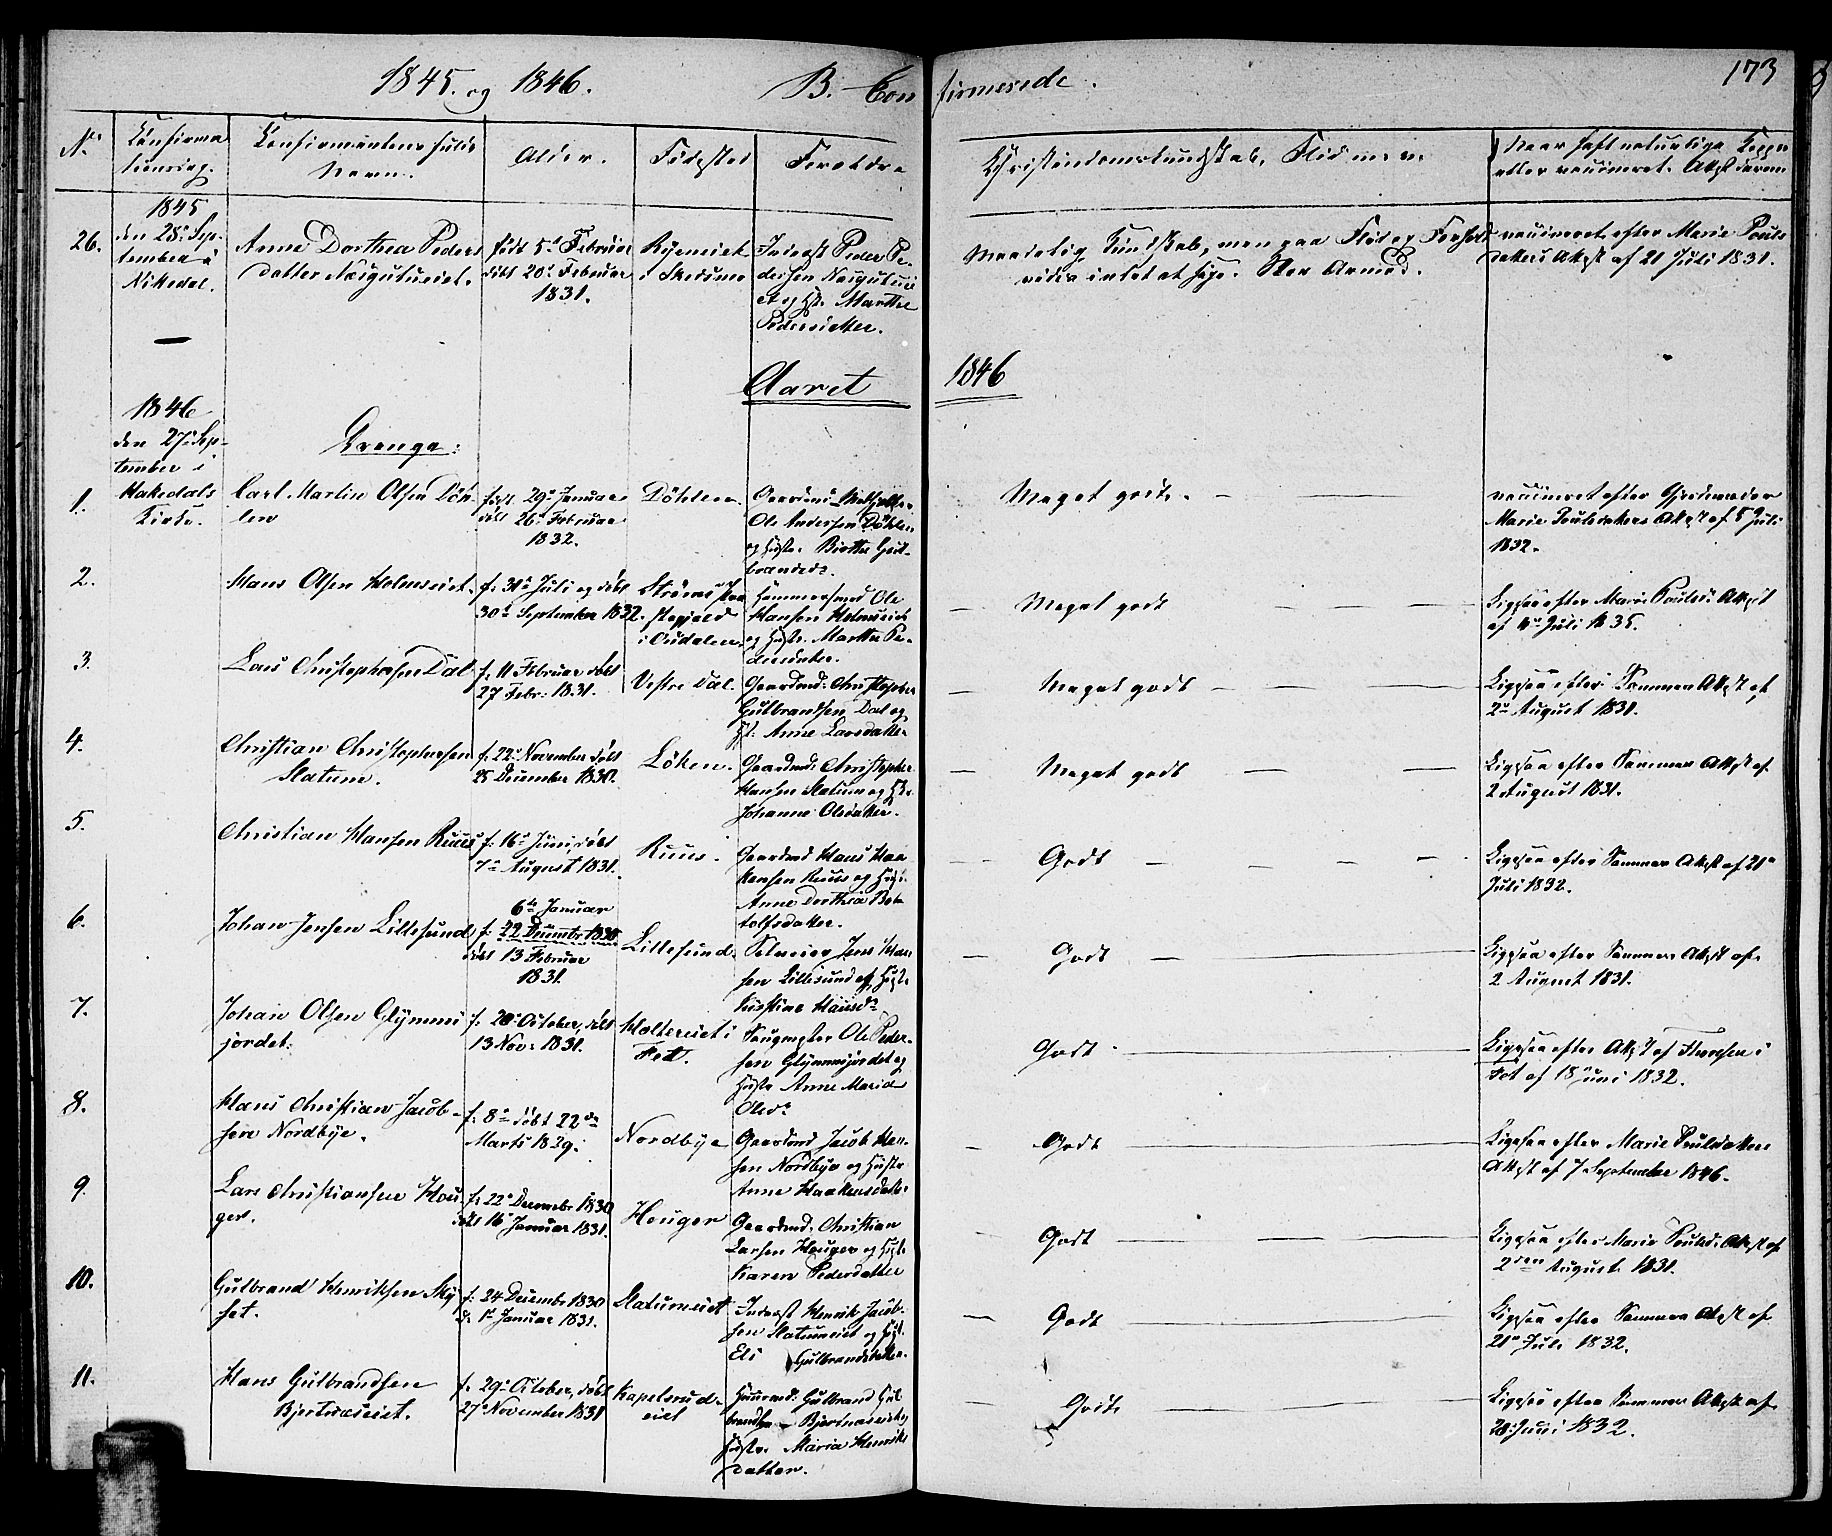 1845. og 1846.
B. Confirmerede.
173
No
Confirma
tionsdag.
Confirmantens fulde
Navn.
Alder.
Fødested
Forældre
Christendomskundskab, Flid m. v.
Naar haft naturlige Kopper
eller vaccineret. Attest derom
1845
den 28de Sep-
tember i
Nikedal.
26.
Anne Dorthea Peders
datter
født 5te Februar
døbt 20de Februar
1831.
i Skedsmo
Inderst Peder Pe-
dersen
et og Hst. Marthe
Pedersdatter.
Maadelig Kundskab, men paa Flid og Forhold
videre intet at sige.
vaccineret efter Marie Pouls
datters Attest af 21 Juli 1831.
Aaret 1846
1846
den 27de Sep-
tember i
Hakedals
Kirke.
Drenge:
1.
Carl Martin Olsen Døh-
len
født 29de Januar
døbt 26de Februar
1832.
Døhlen
Ole Andersen Døhlen
og Hustr. Birthe Gul-
brandsd.
Meget godt.
vaccineret efter Gjordemoder
Marie Poulsdatters Attest af 5 Juli
1832.
2.
Hans Olsen Holmseiet.
f. 31te Juli og døbt
30te September 1832.
i Oudalen.
Ole
Hansen Holmseiet
og Hustr. Marthe Pe-
dersdatter.
Meget godt
Ligesaa efter Marie Poulsd. Attest
af Juli 1835.
3.
Lars Christophersen Dal
f. 11 Februar døbt
27 Febr. 1831.
Vestre Dal.
Gaardmd. Christopher
Gulbrandsen Dal og
Hst. Anne Larsdatter
Meget godt
Ligesaa efter Samme Attest af
2den August 1831.
4.
Christian Christophersen
Slatum.
f. 22de November døbt
25 December 1830.
Løken.
Gaardmd. Christopher
Hansen Slatum og Hst.
Johanne Olsdatter.
Meget godt
Ligesaa efter Sammes Attest af
2 August 1831.
5.
Christian Hansen Ruus
f. 16de Juni, døbt
7de August 1831.
Ruus.
Gaardmd Hans Haa-
kensen Ruus og Hust.
Anne Dorthea Bot-
tolfsdatter.
Godt
Ligesaa efter Sammes Attest af 21de
Juli 1832.
6.
Johan Jensen Lillesund
6te Januar
f. 22 Decembr 1830
døbt 13 Februar
1831.
Lillesund.
Selveier Jens Han-
sen Lillesund og Hust.
Kirstine Hansd.
Godt
Ligesaa efter Sammes Attest af
2 August 1831.
7.
Johan Olsen Glymme
jordet.
f. 20de October, døbt
13 Nov. 1831.
Holtereiet i
Fet.
Saugmester Ole Peder-
sen Glymmejordet og
Hustr Anne Marie
Olsd.
Godt
Ligesaa efter Attest af
Fet af 18 Juni 1832.
8.
Hans Christian Jacob-
sen Nordbye.
f. 8de døbt 22de
Marts 1829.
Nordbye
Gaardmd Jacob Han-
sen Nordbye og Hustr
Anne Haakensdatter
Godt
Ligesaa efter Marie Poulsdatters
Attest af 7 September 1846.
9.
Lars Christiansen Hou-
ger.
f. 22de Decembr 1830
døbt 16de Januar 1831.
Houger
Gaardmd. Christian
Larsen Houger og Hst.
Karen Pedersdatter
Godt
Ligesaa efter Marie Poulsd. Attest af
2den August 1831.
10.
Gulbrand Henriksen Sky-
set.
f. 24 Decembr 1830
d. 1ste Januar 1831.
Slatumeiet
Inderst Henrik Jacob-
sen Slatumeiet og Hst.
Eli Gulbrandsdatter.
Godt
Ligesaa efter Sammes Attest af
21de Juli 1832.
11.
Hans Gulbrandsen
Bjertnæseiet.
f. 29de October, døbt
27de November 1831
Kapelsrud-
eiet
Huusmd. Gulbrand Gul-
brandsen Bjertnæseiet og
Hustr. Maria Henriks
datter.
Godt.
Ligesaa efter Sammes Attest af
20de Juni 1832.